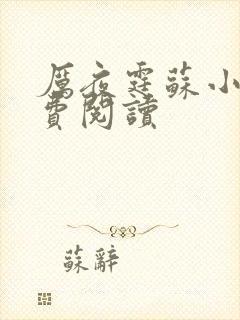 厲夜霆蘇小
費閱讀
蘇辭